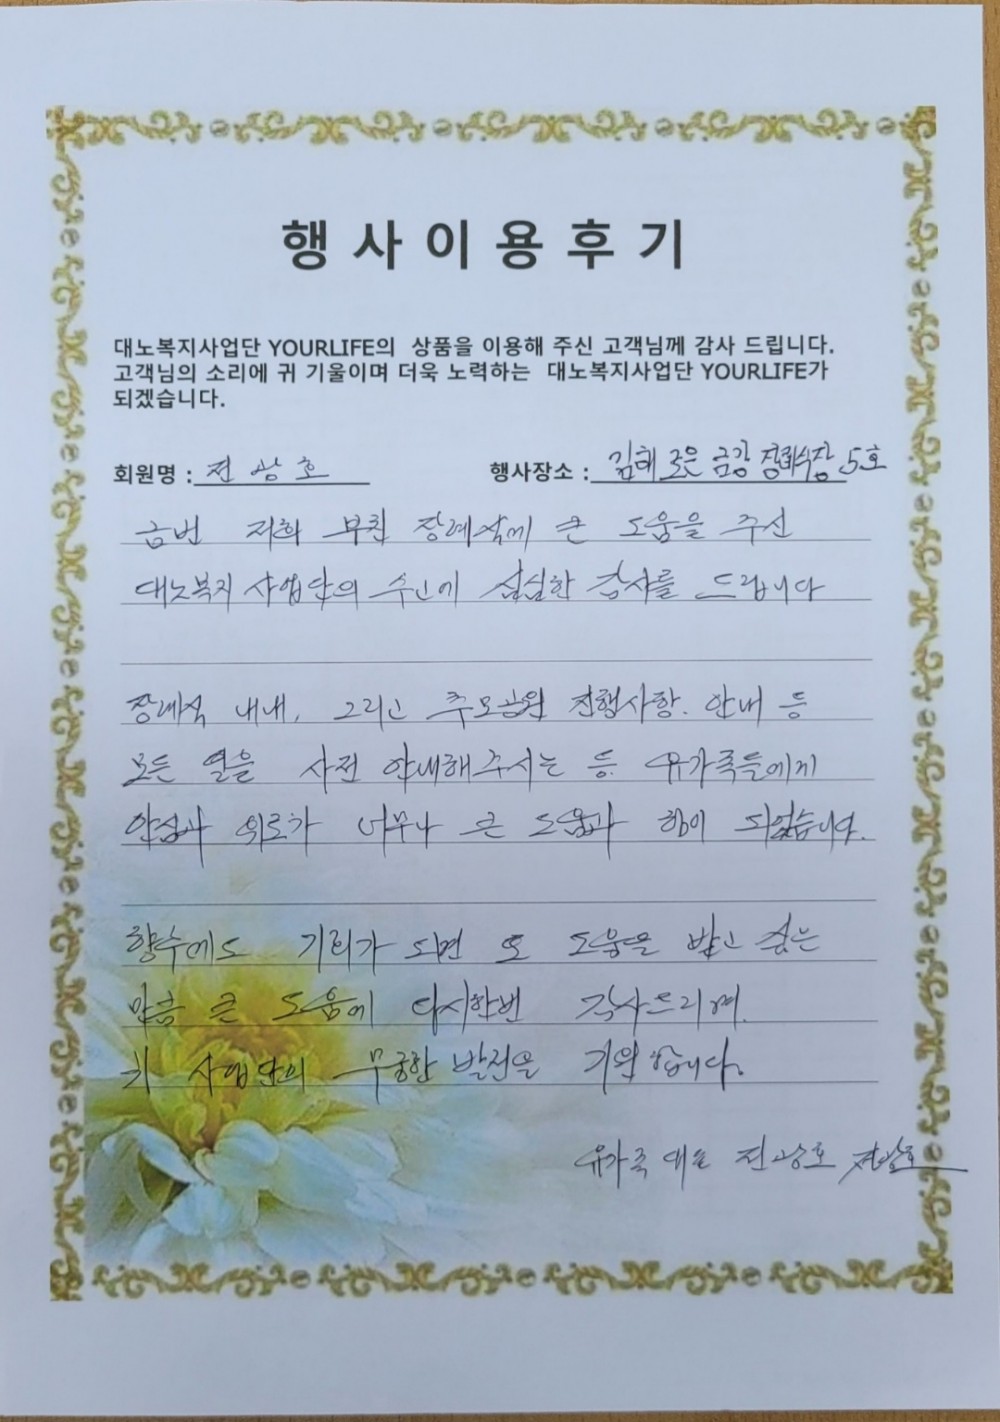 행사이용후기
대노복지사업단 YOURLIFE의 상품을 이용해 주신 고객님께 감사 드립니다.
고객님의 소리에 귀 기울이며 더욱 노력하는 대노복지사업단 YOURLIFE가
되겠습니다.
회원명 : 전광호 행사장소 : 김해 조은 금강 장례식장 5호
금번 저희 부친 장례식에 큰 도움을 주신
대노복지 사업단의 수고에 심심한 감사를 드립니다
장례식 내내, 그리고 추모공원 진행사항. 안내 등
모든 일을 사전 안내해주시는 등 유가족들에게
안심과 위로가 너무나 큰 도움과 힘이 되었습니다.
향후에도 기회가 되면 또 도움을 받고 싶은
만큼 큰 도움에 다시한번 감사드리며.
귀 사업단의 무궁한 발전을 기원합니다.
유가족 대표 전광호 전광호